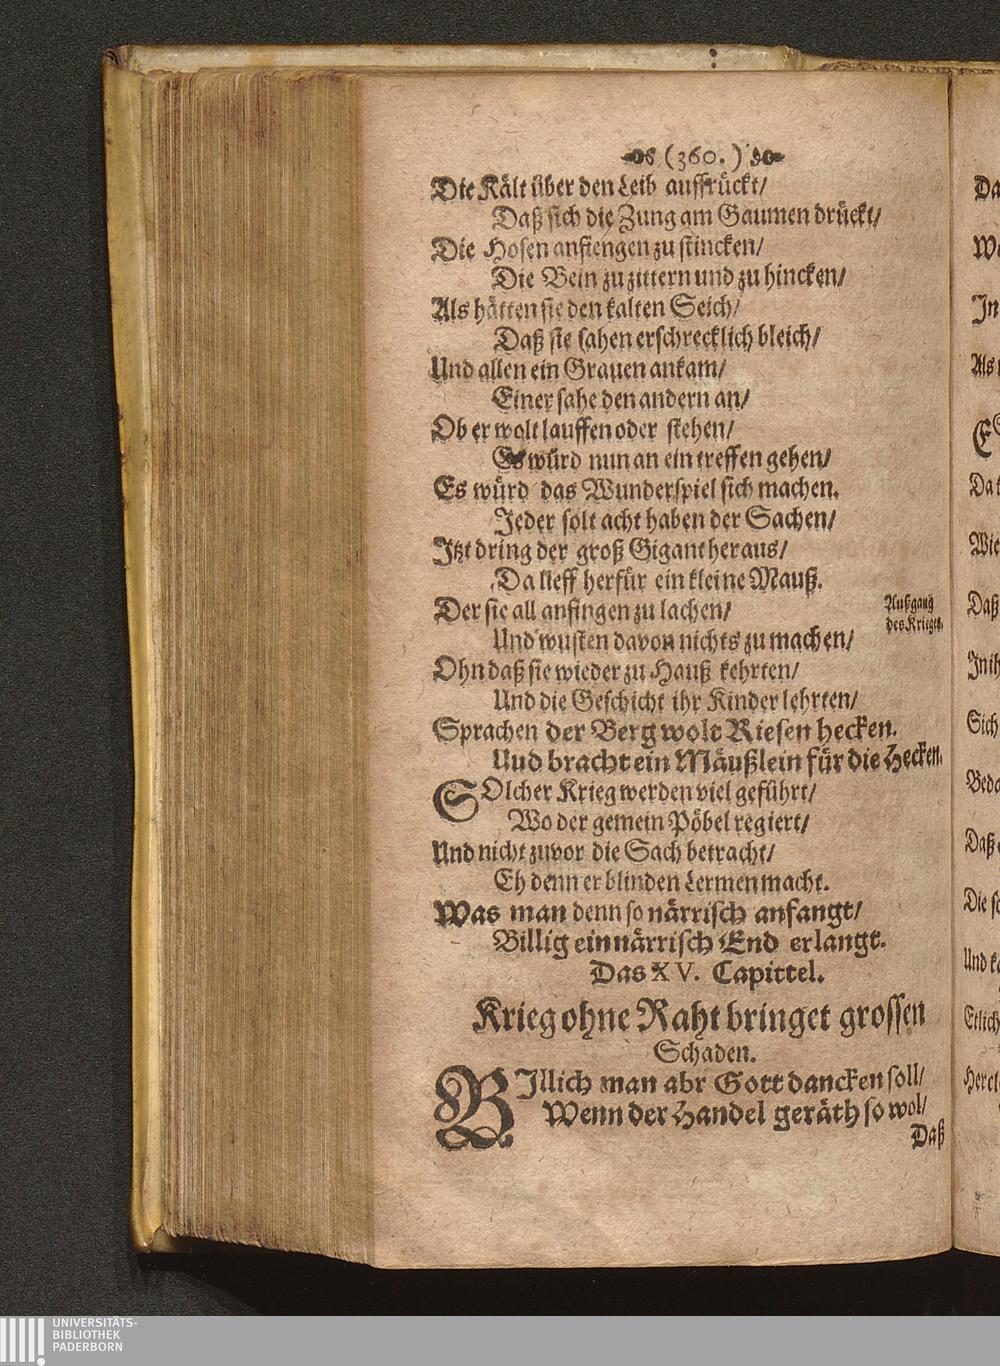 (360.)
Die Kält über den Leib auffrückt/
Daß sich die Zung am Gaumen drückt/
Die Hosen anfiengen zu stincken/
Die Bein zu zittern und zu hincken/
Als hätten sie den kalten Seich/
Daß sie sahen erschrecklich bleich/
Und allen ein Grauen ankam/
Einer sahe den andern an/
Ob er wolt lauffen oder stehen/
Es würd nun an ein treffen gehen/
Es würd das Wunderspiel sich machen.
Jeder solt acht haben der Sachen/
Jtzt dring der groß Gigant heraus/
Da lieff herfür ein kleine Mauß.
Der sie all anfingen zu lachen/
Außgang
des Krieges.
Und wusten davon nichts zu machen/
Ohn daß sie wieder zu Hauß kehrten/
Und die Geschicht ihr Kinder lehrten/
Sprachen der Berg wolt Riesen hecken.
Uud bracht ein Mäußlein für die Hecken.
SOlcher Krieg werden viel geführt/
Wo der gemein Pöbel regiert/
Und nicht zuvor die Sach betracht/
Eh denn er blinden Lermen macht.
Was man denn so närrisch anfangt/
Billig ein närrisch End erlangt.
Das XV. Capittel.
Krieg ohne Raht bringet grossen
Schaden.
BJllich man abr Gott dancken soll/
Wenn der Handel geräth so wol/
Daß
Da
We
Jn
Als
Da
Wie
Daß
Jn ih
Sich
Beda
Daß
Die
Und
Etlich
UNIVERSITÄTS-
BIBLIOTHEK
PADERBORN